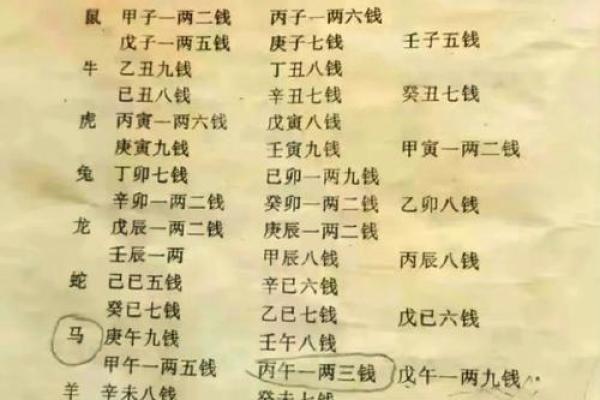 鼠 甲子一两二钱 丙子一两六钱
戊子一两五钱 庚子七钱 壬子五钱
牛 乙丑九钱 丁丑八钱
已丑八钱 辛丑七钱 癸丑七钱
虎 丙寅一两六钱 戊寅八钱
庚寅九钱 壬寅九钱 甲寅一两二钱
兔 丁卯七钱 已卯一两九钱
辛卯一两二钱 癸卯一两二钱 乙卯八钱
龙 戊辰一两二钱 庚辰一两二钱
壬辰一两 甲辰八钱 丙辰八钱
蛇 己已五钱 辛已六钱
癸已七钱 乙已七钱 戊已六钱
马 庚午九钱 壬午八钱
甲午一两五钱 丙午一两三钱 戊午一两九钱
羊 辛未八钱 癸未七钱